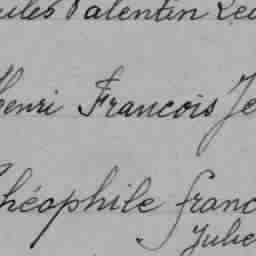 Jules Valentin Leo
Henri Francois Je
Théophile franc
Julie